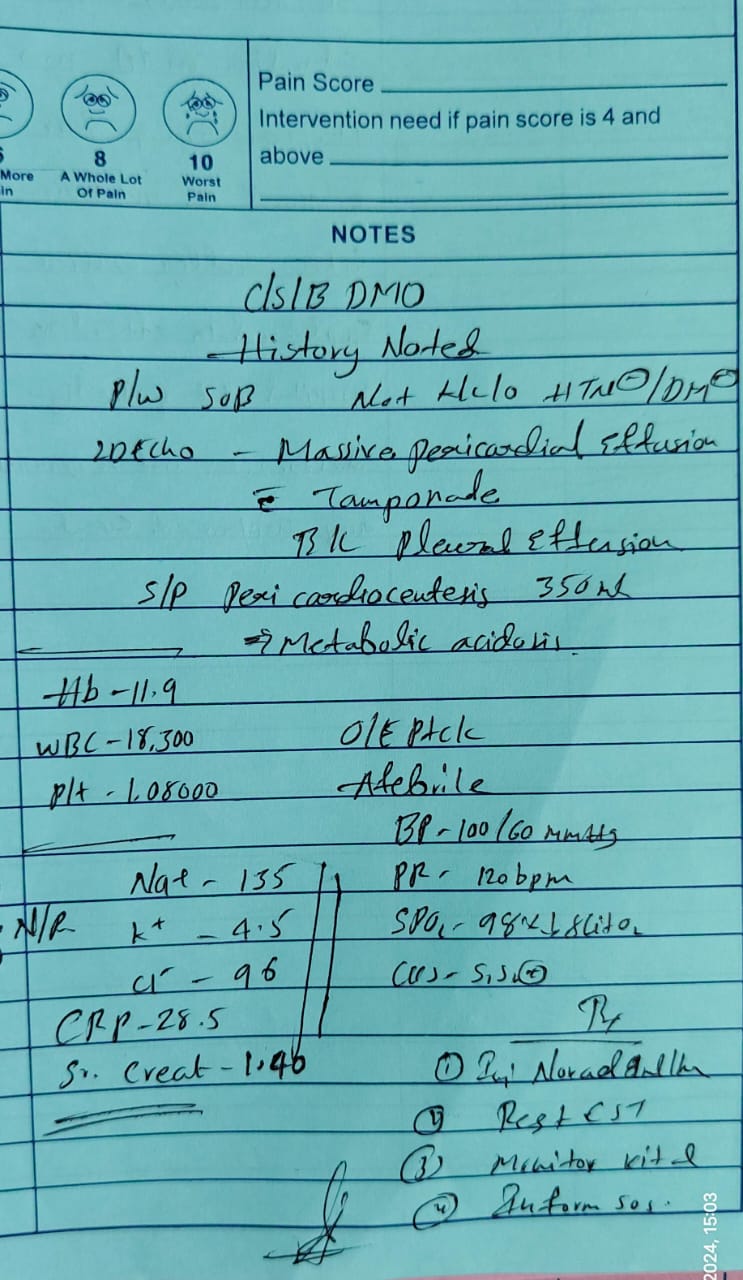 8
10
More
A Whole Lot
Worst
in
Of Pain
Pain
Pain Score
Intervention need if pain score is 4 and
above
NOTES
C/S/B DMO
History Noted
P/W SOB Not H/c/o HTN⊖/DM⊖
2D Echo - Massive pericardial Effusion
c̄ Tamponade
B/L pleural Effusion
S/P Peri cardiocentesis 350 ml
⇒ Metabolic acidosis
Hb - 11.9
WBC - 18,300
O/E
Plt - 1.08000
Afebrile
BP - 100/60 mmHg
Na+ - 135
PR - 120 bpm
N/R K+ - 4.5
SPO2 - 98%
Cl- - 96
CVS - S1S2⊕
CRP - 28.5
Rx
Sr. Creat - 1.46
① Inj
Rest CST
③ Monitor vital
④ Inform sos.
2024, 15:03